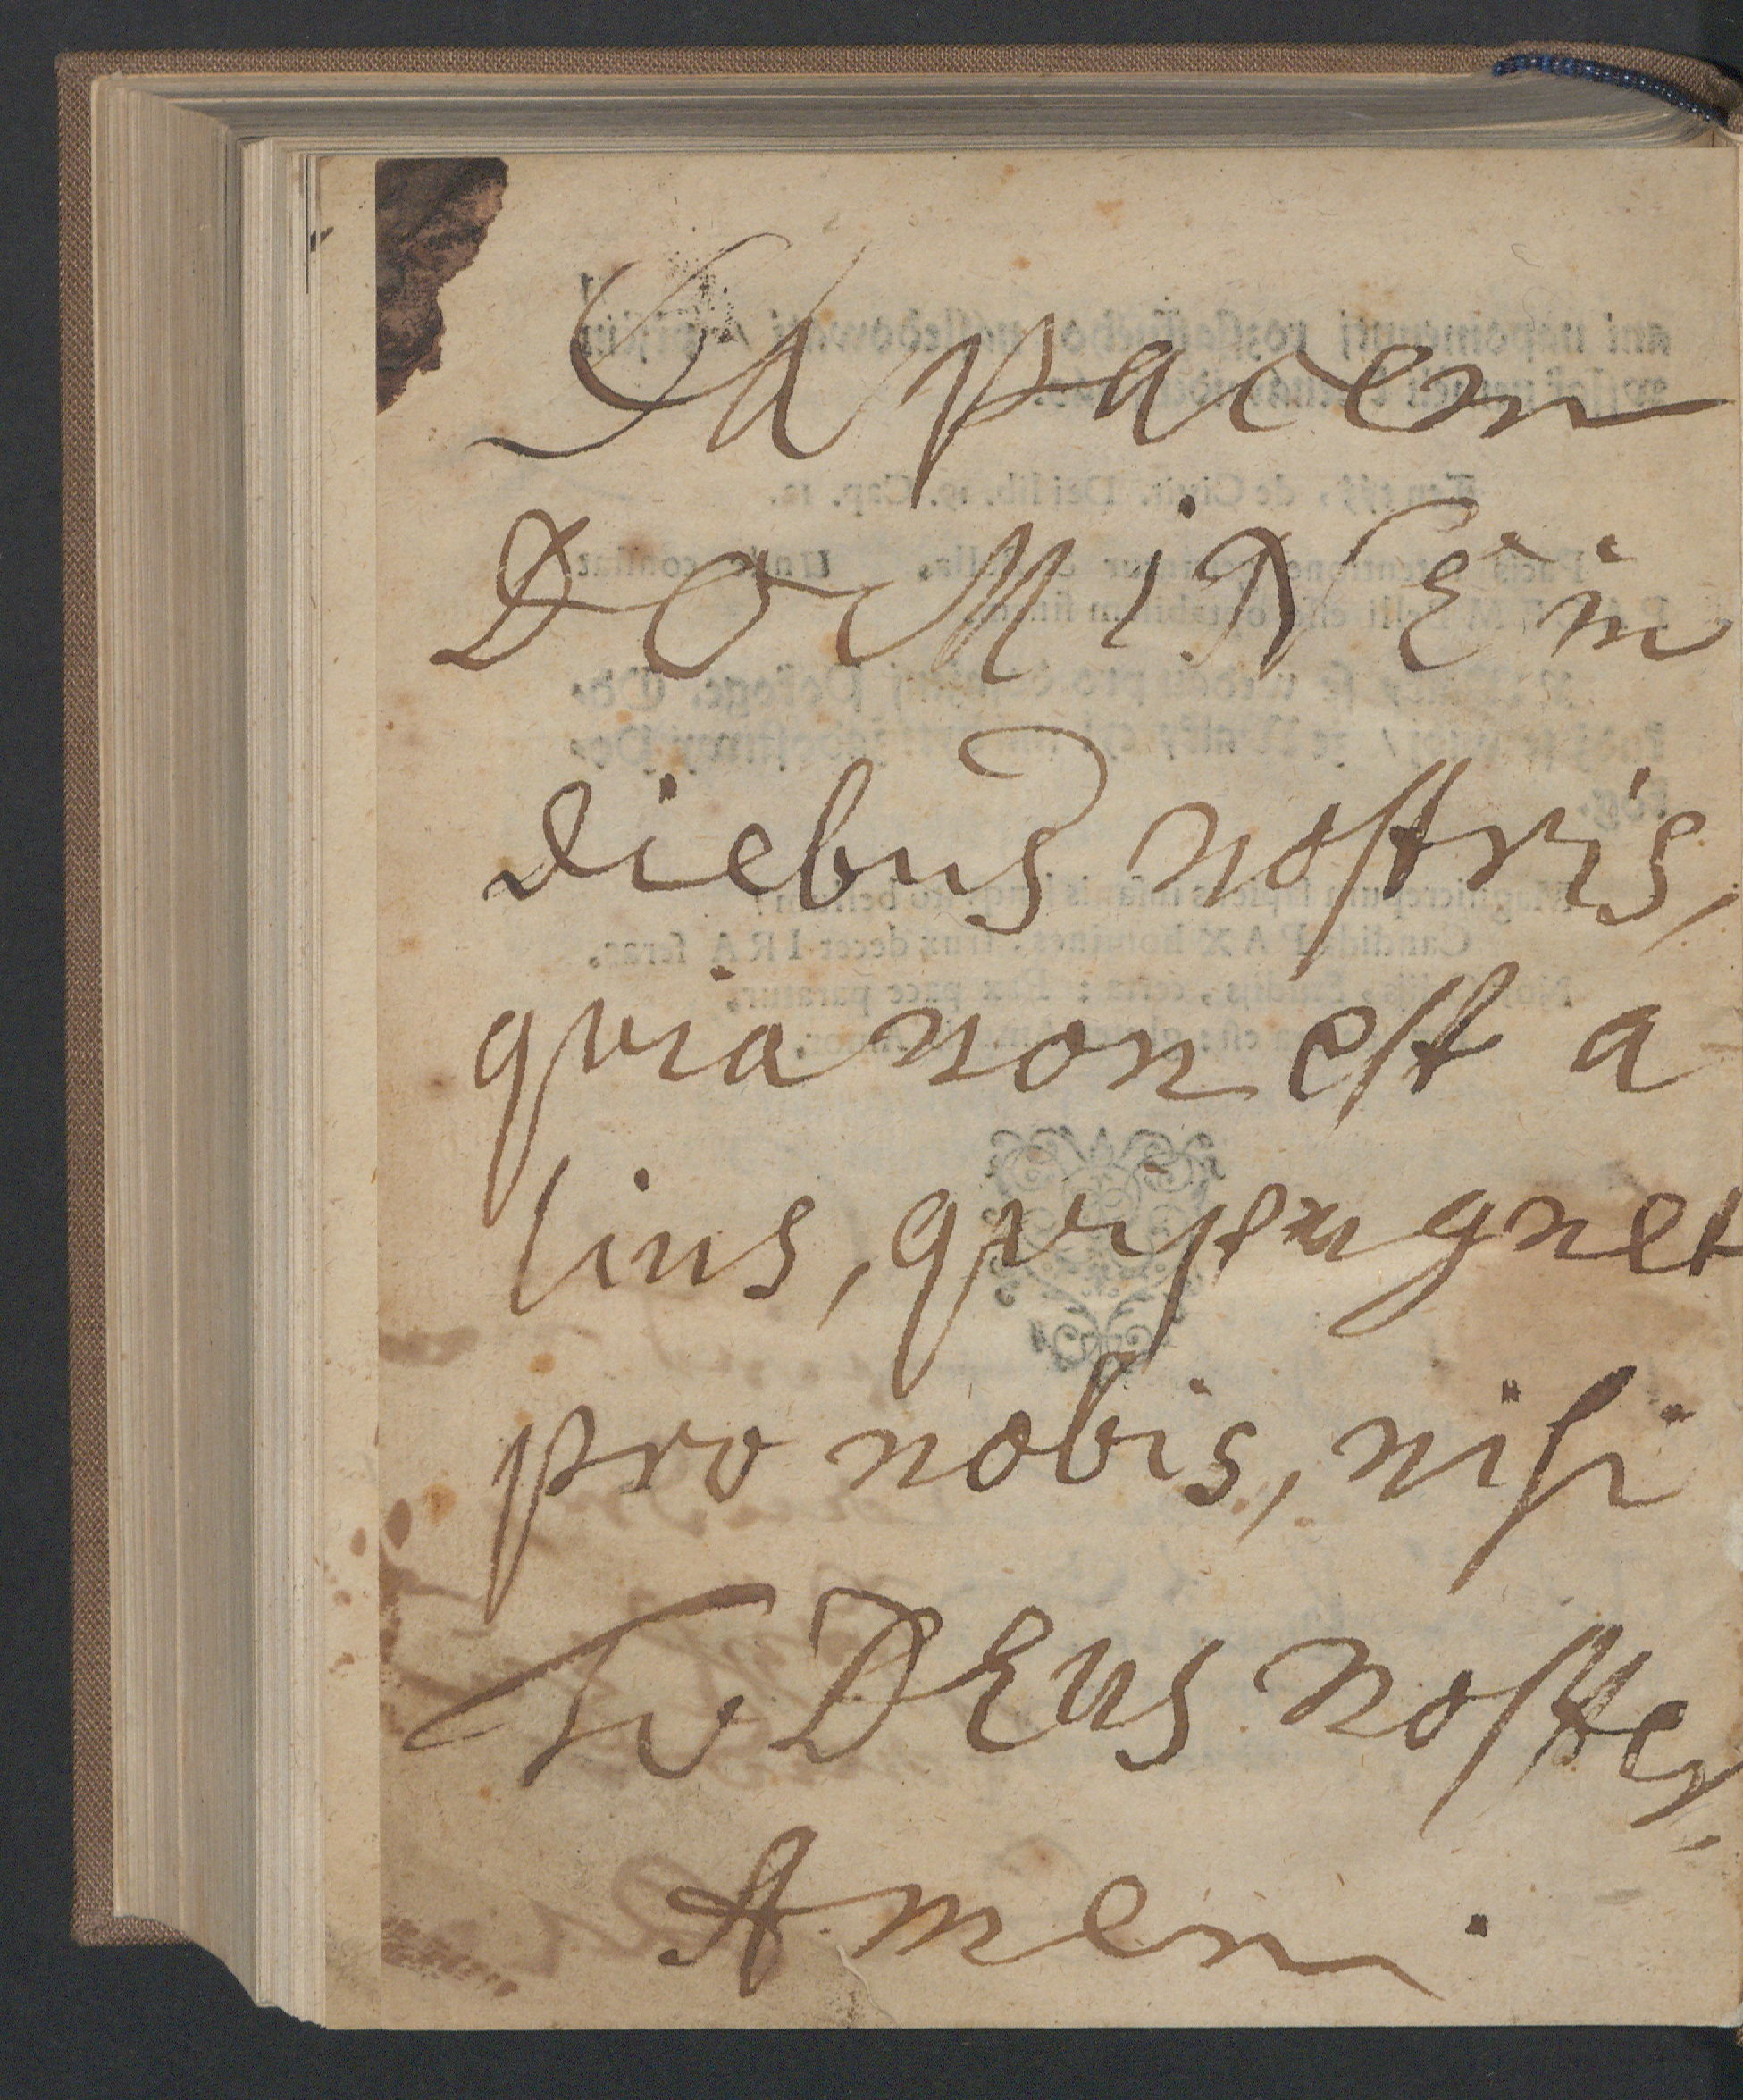 Da pacem
DOMINE in
diebus noſtris,
qvia non eſt a
lius, qvi pugnet
pro nobis, niſi
Tu DEus noſter,
Amen.